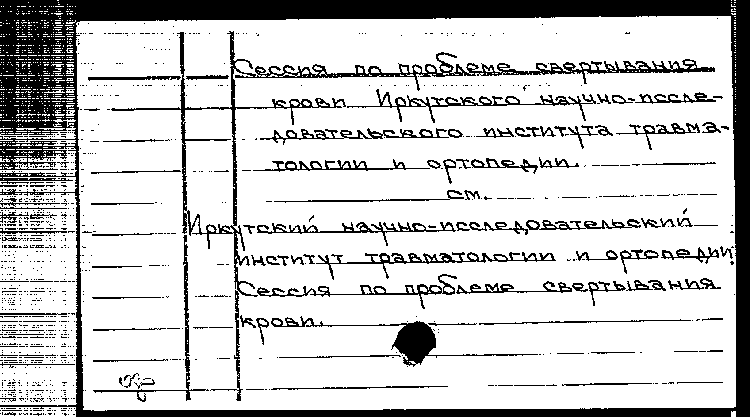 Сессия по проблеме свертывания
крови Иркутского научно-иссле-
довательского института травма-
тологии и ортопедии.
см.
Иркутский научно-исследовательский
институт травматологии и ортопедии.
Сессия по проблеме свертывания
крови.